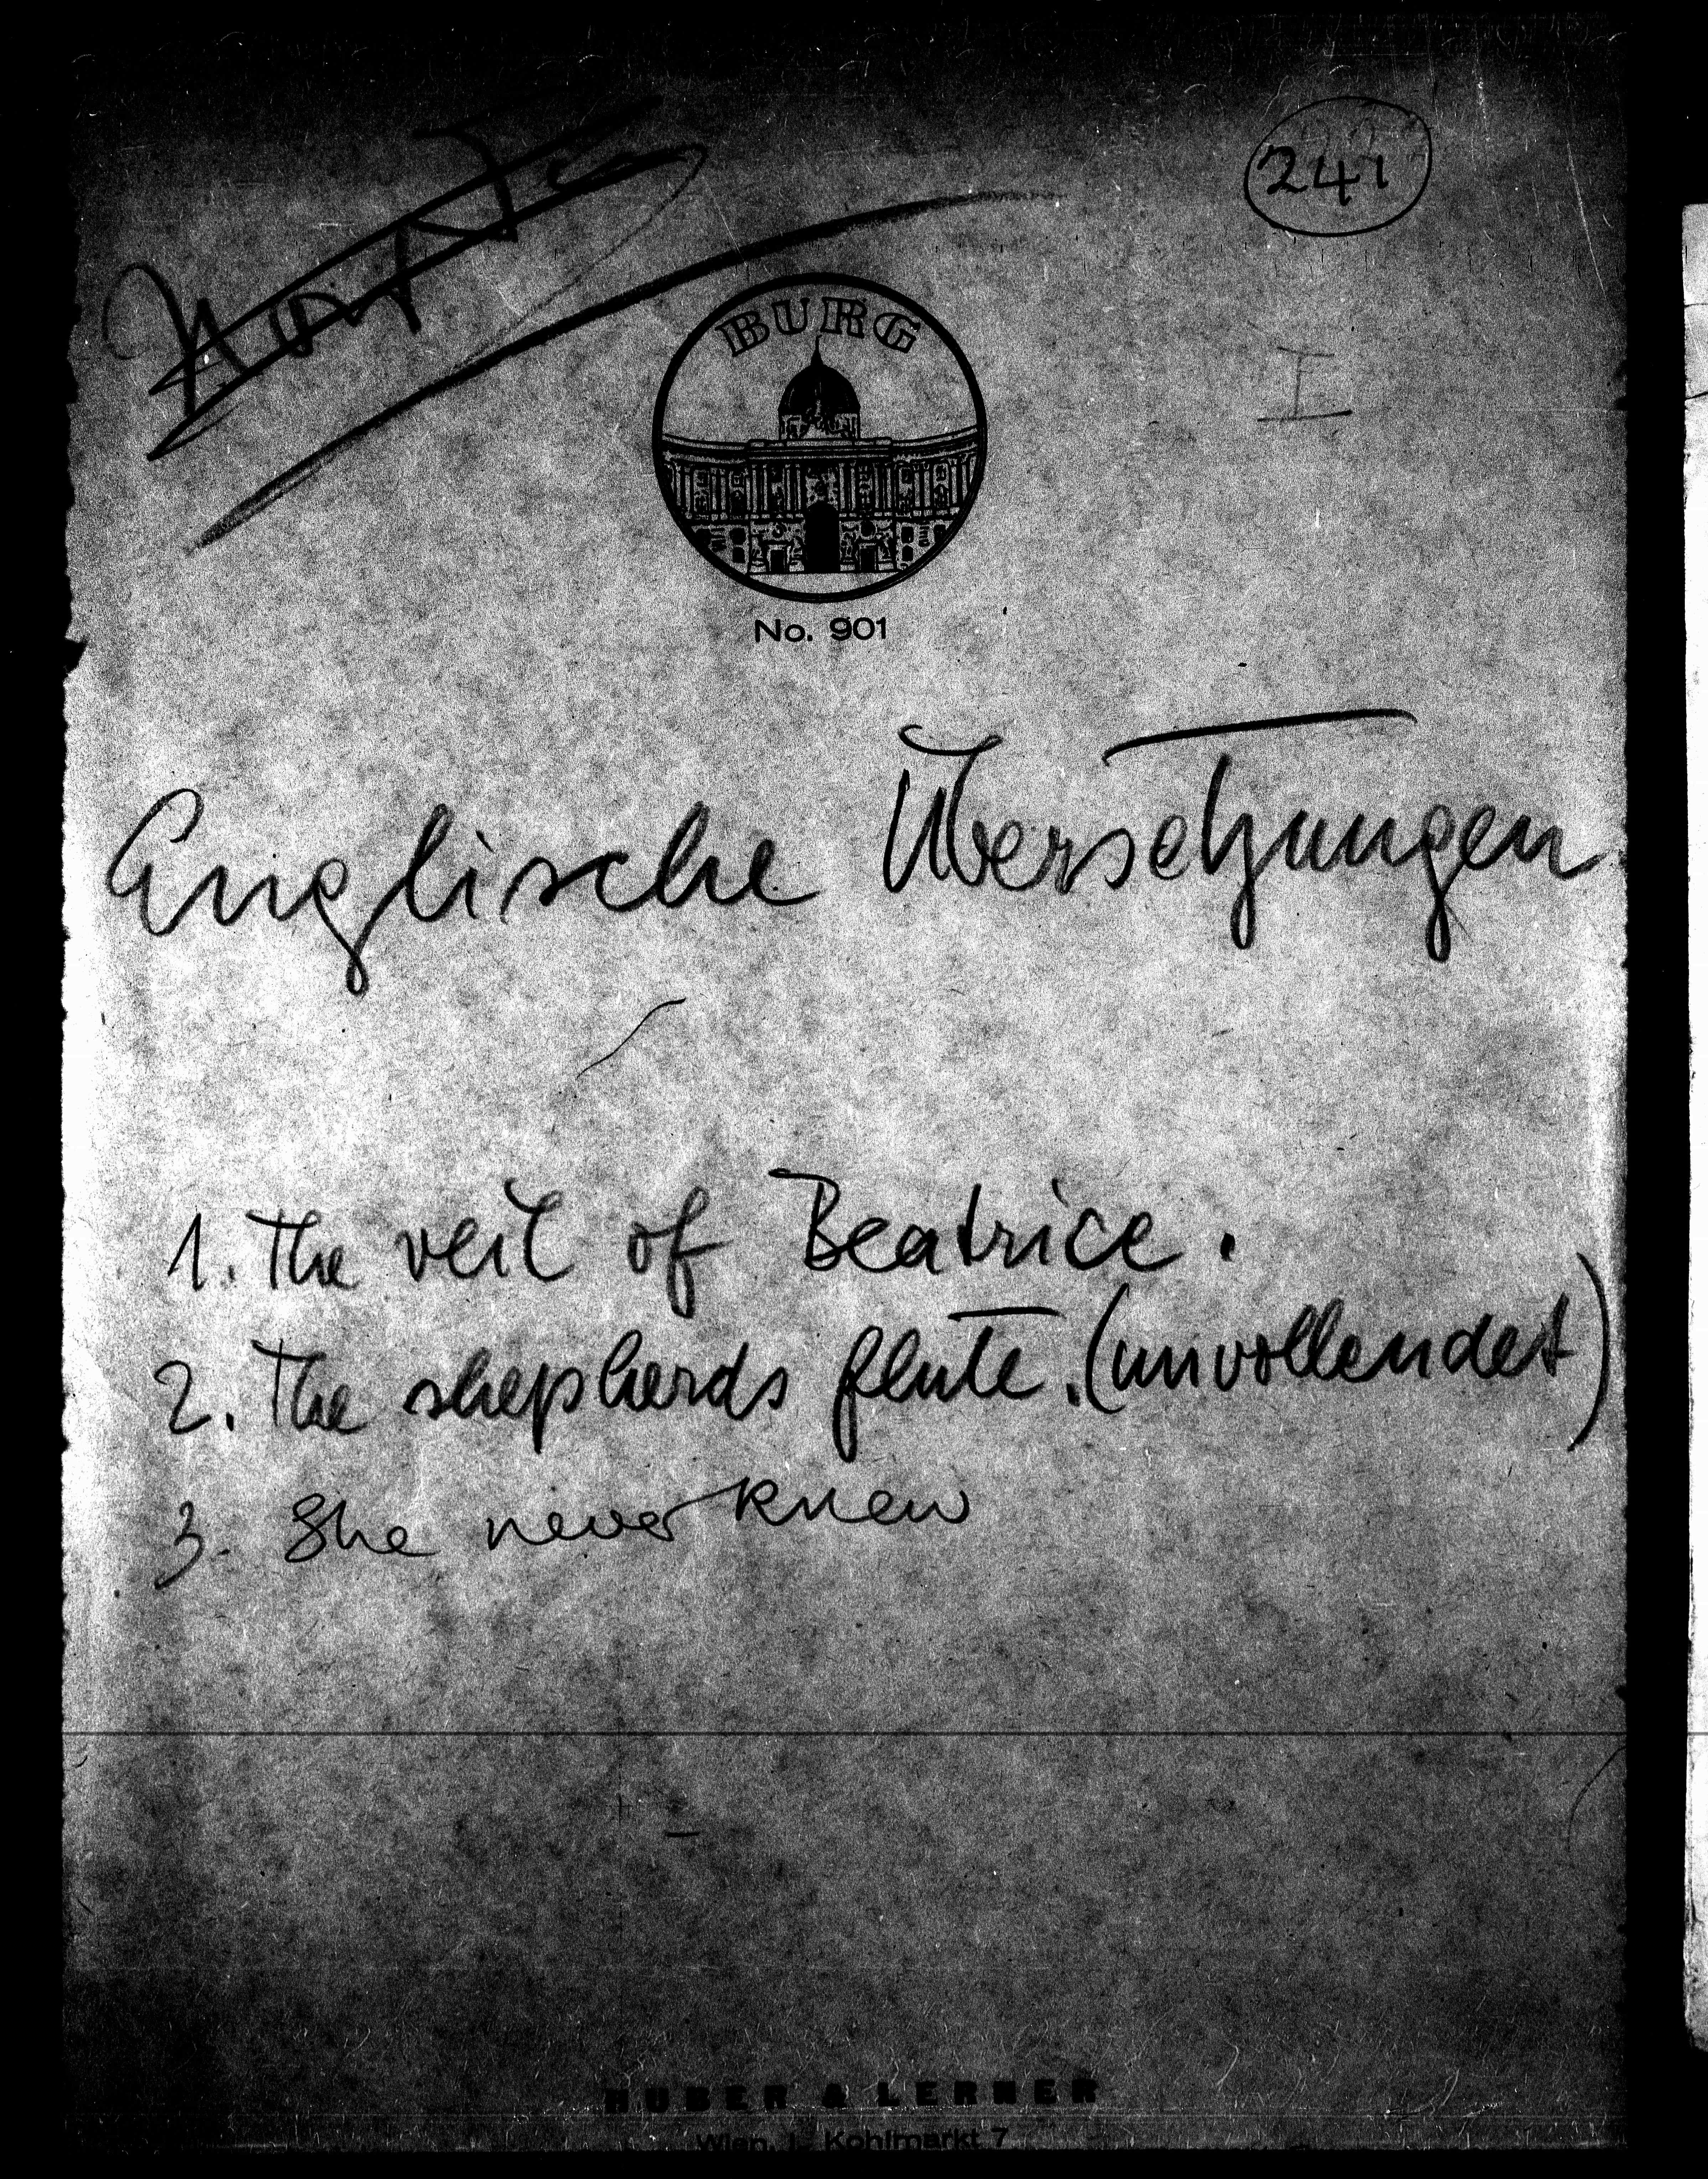 241
I
BURG
No. 901
Englische Übersetzungen
1. The veil of Beatrice.
2. The shepherds flute. (unvollendet)
3. She never knew
HUBER & LERNER
Wien, I., Kohlmarkt 7